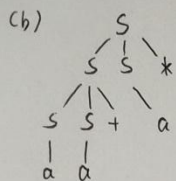 (b) S
S S *
S S + a
a a